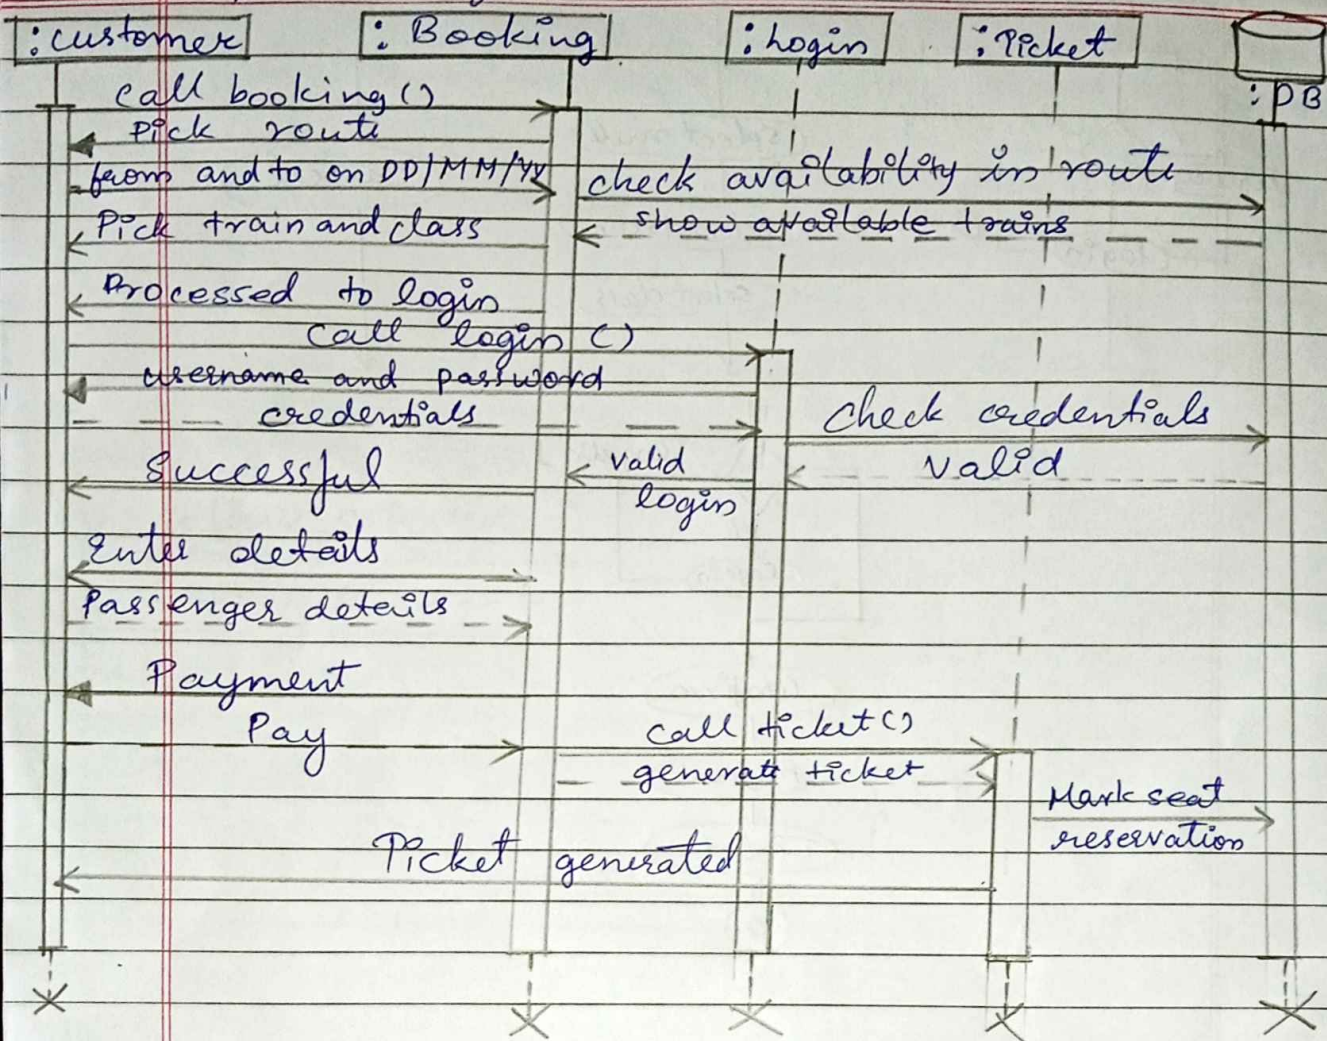 :customer
: Booking
: Login
: Ticket
: DB
call booking()
Pick route
from and to on DD/MM/YY
check availability in route
Pick train and class
show available trains
Processed to login
call login ()
username and password
credentials
check credentials
Successful
valid
login
valid
Enter details
Passenger details
Payment
Pay
call ticket()
generate ticket
Mark seat
reservation
Ticket generated